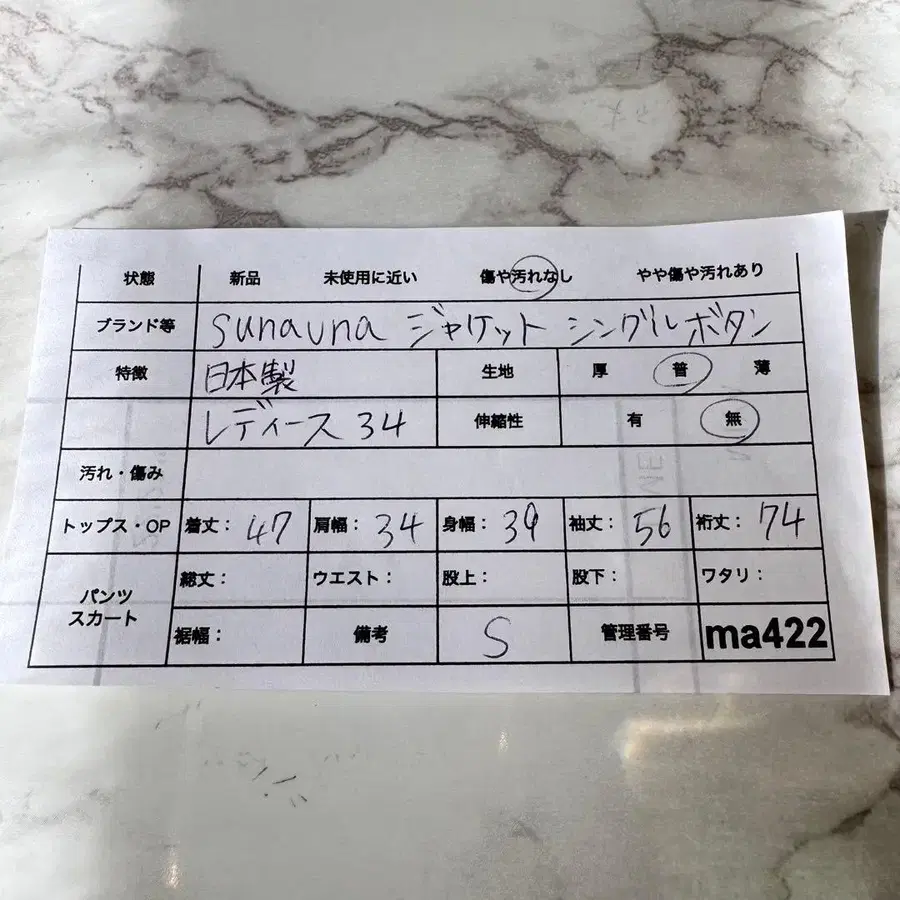 状態 新品 未使用に近い 傷や汚れなし やや傷や汚れあり
ブランド等 sunauna ジャケット シングルボタン
特徴 日本製 生地 厚 普 薄
レディース 34 伸縮性 有 無
汚れ・傷み
トップス・OP 着丈： 47 肩幅： 34 身幅： 39 袖丈： 56 裄丈： 74
パンツ スカート 総丈： ウエスト： 股上： 股下： ワタリ：
裾幅： 備考 S 管理番号 ma422